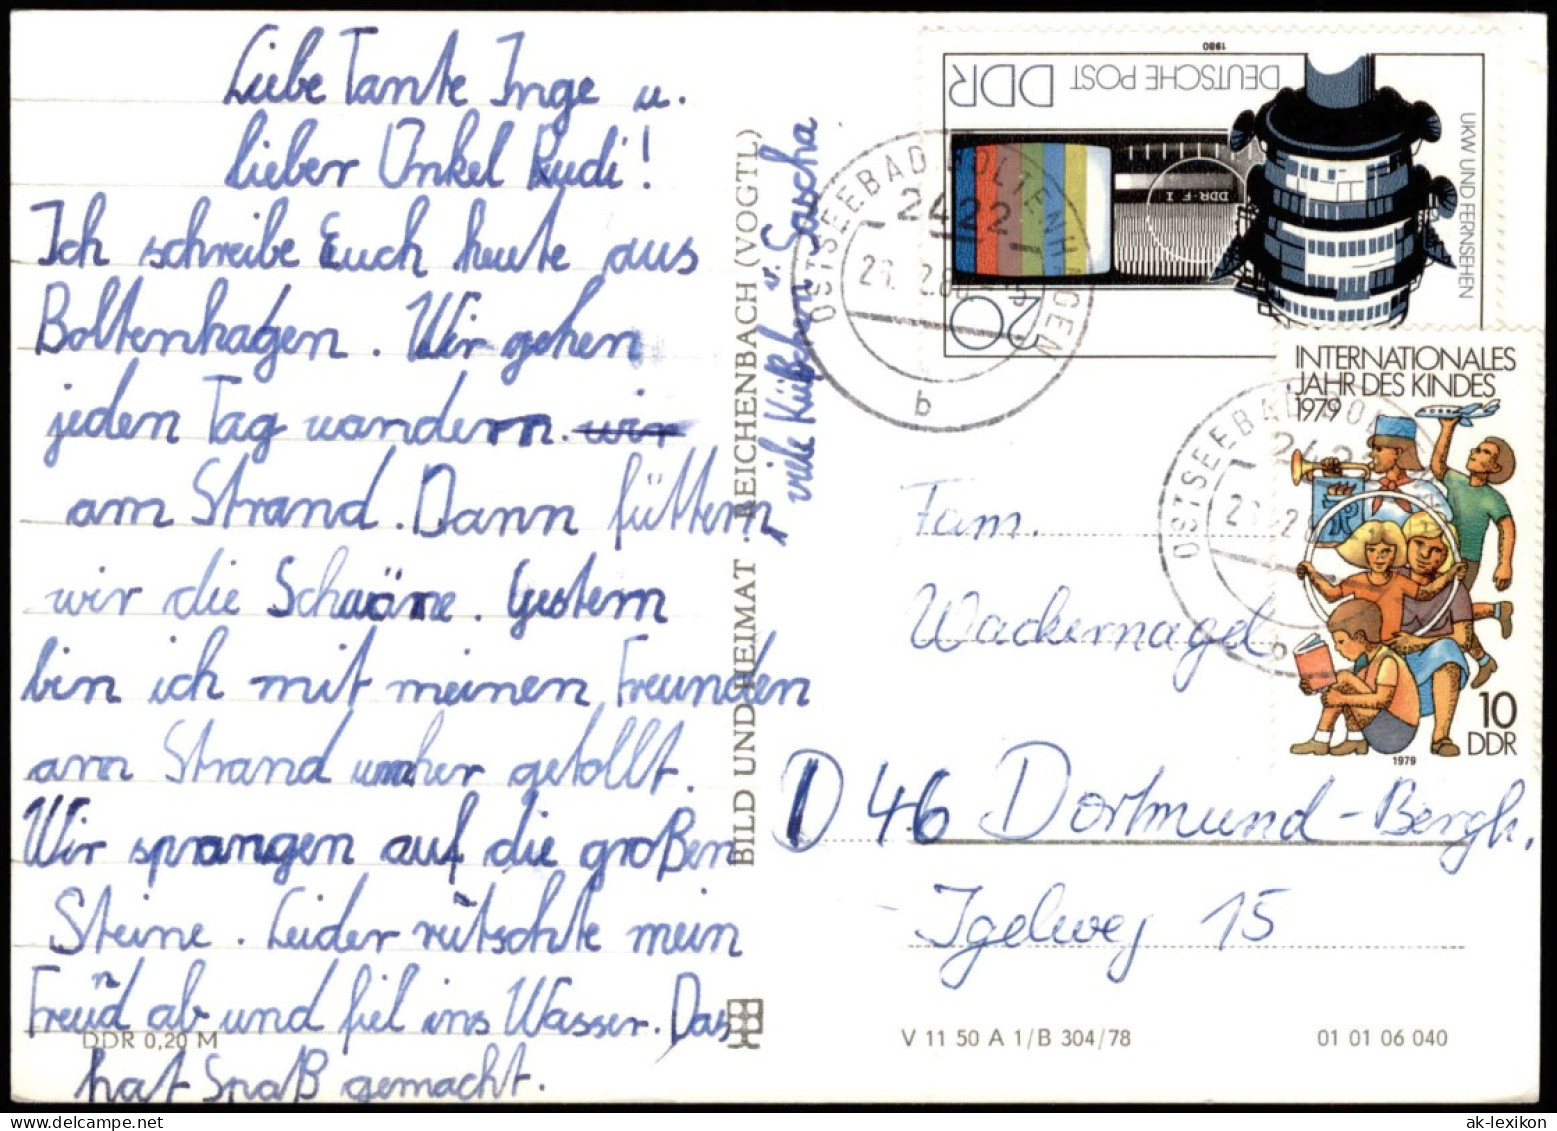 Liebe Tante Inge u.
lieber Onkel Rudi!
Ich schreibe Euch heute aus
Boltenhagen. Wir gehen
jeden Tag wandern. wir
am Strand. Dann füttern
wir die Schwäne. Gestern
bin ich mit meinen Freunden
am Strand umher getollt.
Wir sprangen auf die großen
Steine. Leider rutschte mein
Freund ab und fiel ins Wasser. Das
hat Spaß gemacht.
viele Küßchen v. Sascha
DDR 0,20 M
BILD UND HEIMAT · REICHENBACH (VOGTL)
DEUTSCHE POST DDR
1980
UKW UND FERNSEHEN
DDR-F 1
20
OSTSEEBAD BOLTENHAGEN
2422
b
INTERNATIONALES
JAHR DES KINDES
1979
10
DDR
1979
OSTSEEBAD BOL
2422
b
Fam.
Wackernagel
D 46 Dortmund-Bergh.
Igelweg 15
V 11 50 A 1/B 304/78
01 01 06 040
ak-lexikon.com